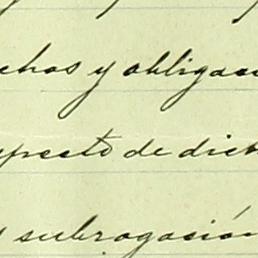 chos y obligaci
specto de dich
y subrogación